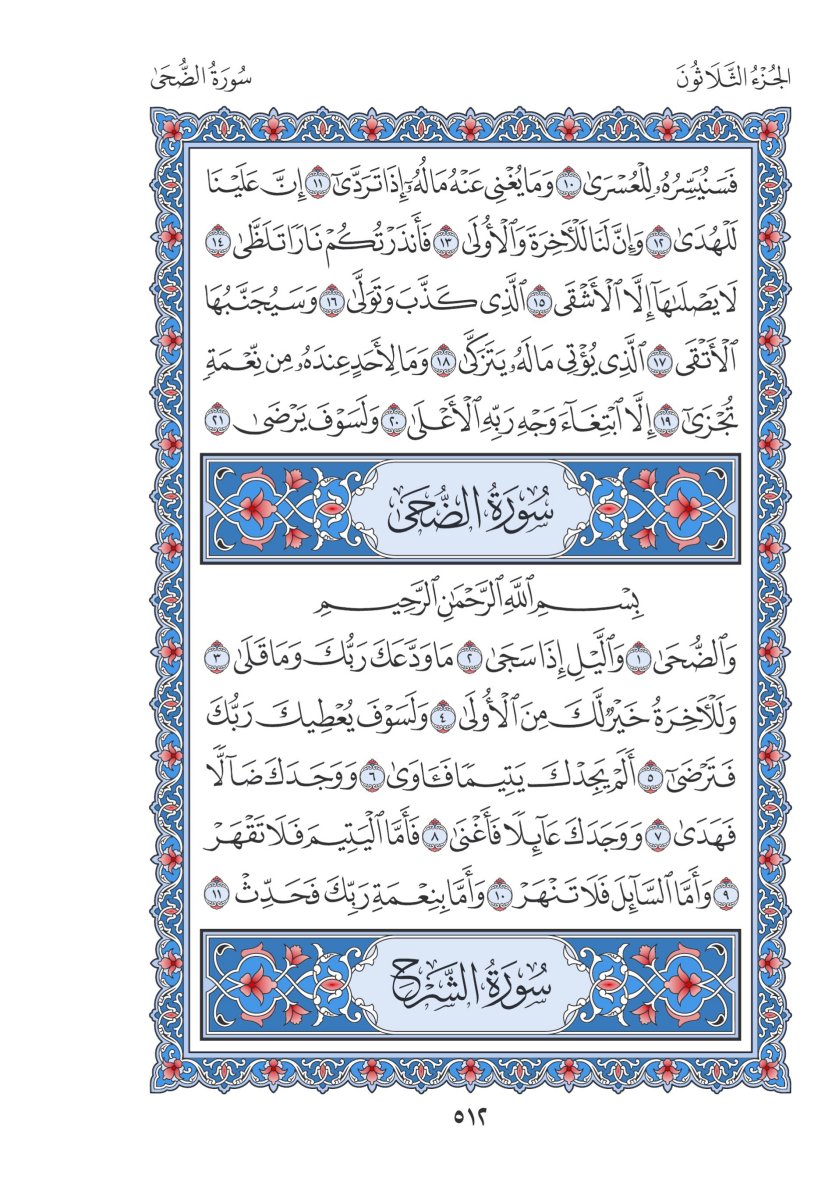 الجُزْءُ الثَّلَاثُونَ
سُورَةُ الضُّحَىٰ
فَسَنُيَسِّرُهُۥ لِلۡعُسۡرَىٰ ١٠ وَمَا يُغۡنِي عَنۡهُ مَالُهُۥٓ إِذَا تَرَدَّىٰٓ ١١ إِنَّ عَلَيۡنَا
لَلۡهُدَىٰ ١٢ وَإِنَّ لَنَا لَلۡأٓخِرَةَ وَٱلۡأُولَىٰ ١٣ فَأَنذَرۡتُكُمۡ نَارٗا تَلَظَّىٰ ١٤
لَا يَصۡلَىٰهَآ إِلَّا ٱلۡأَشۡقَى ١٥ ٱلَّذِي كَذَّبَ وَتَوَلَّىٰ ١٦ وَسَيُجَنَّبُهَا
ٱلۡأَتۡقَى ١٧ ٱلَّذِي يُؤۡتِي مَالَهُۥ يَتَزَكَّىٰ ١٨ وَمَا لِأَحَدٍ عِندَهُۥ مِن نِّعۡمَةٖ
تُجۡزَىٰٓ ١٩ إِلَّا ٱبۡتِغَآءَ وَجۡهِ رَبِّهِ ٱلۡأَعۡلَىٰ ٢٠ وَلَسَوۡفَ يَرۡضَىٰ ٢١
سُورَةُ الضُّحَىٰ
بِسۡمِ ٱللَّهِ ٱلرَّحۡمَٰنِ ٱلرَّحِيمِ
وَٱلضُّحَىٰ ١ وَٱلَّيۡلِ إِذَا سَجَىٰ ٢ مَا وَدَّعَكَ رَبُّكَ وَمَا قَلَىٰ ٣
وَلَلۡأٓخِرَةُ خَيۡرٞ لَّكَ مِنَ ٱلۡأُولَىٰ ٤ وَلَسَوۡفَ يُعۡطِيكَ رَبُّكَ
فَتَرۡضَىٰٓ ٥ أَلَمۡ يَجِدۡكَ يَتِيمٗا فَـَٔاوَىٰ ٦ وَوَجَدَكَ ضَآلّٗا
فَهَدَىٰ ٧ وَوَجَدَكَ عَآئِلٗا فَأَغۡنَىٰ ٨ فَأَمَّا ٱلۡيَتِيمَ فَلَا تَقۡهَرۡ
٩ وَأَمَّا ٱلسَّآئِلَ فَلَا تَنۡهَرۡ ١٠ وَأَمَّا بِنِعۡمَةِ رَبِّكَ فَحَدِّثۡ ١١
سُورَةُ الشَّرۡحِ
٥١٢